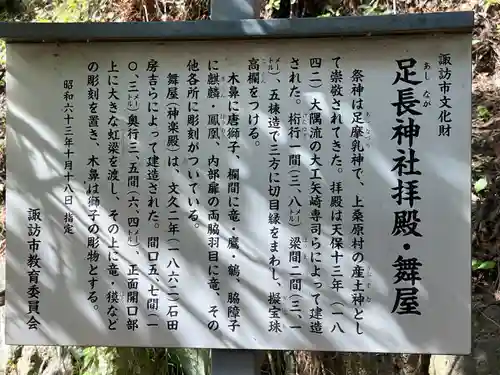 諏訪市文化財
足長神社拝殿・舞屋
あし なが
祭神は足摩乳神で、上桑原村の産土神とし
て崇敬されてきた。拝殿は天保十三年(一八
四二)大隅流の大工矢崎専司らによって建造
された。桁行一間(三、八㍍)梁間二間(三、一
㍍)、五棟造で三方に切目縁をまわし、擬宝珠
高欄をつける。
木鼻に唐獅子、欄間に竜・鷹・鶴、脇障子
に麒麟・鳳凰、内部扉の両脇羽目に竜、その
他各所に彫刻がついている。
舞屋(神楽殿)は、文久二年(一八六二)石田
房吉らによって建造された。間口五、七間(一
〇、三㍍)奥行三、五間(六、四㍍)、正面開口部
上に大きな虹梁を渡し、その上に竜・獏など
の彫刻を置き、木鼻は獅子の彫物とする。
昭和六十三年十月十八日指定
諏訪市教育委員会